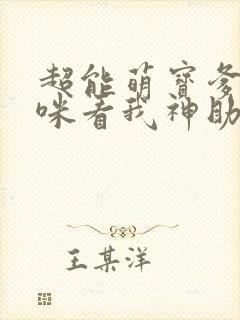 超能萌宝爹
咪看我神助
王某洋